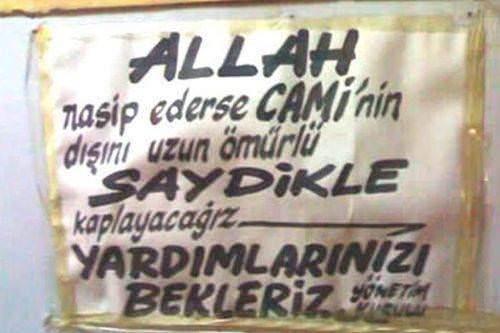 ALLAH
nasip ederse CAMİ'nin
dışını uzun ömürlü
SAYDİKLE
kaplayacağız
YARDIMLARINIZI
BEKLERİZ.
YÖNETİM
KURULU